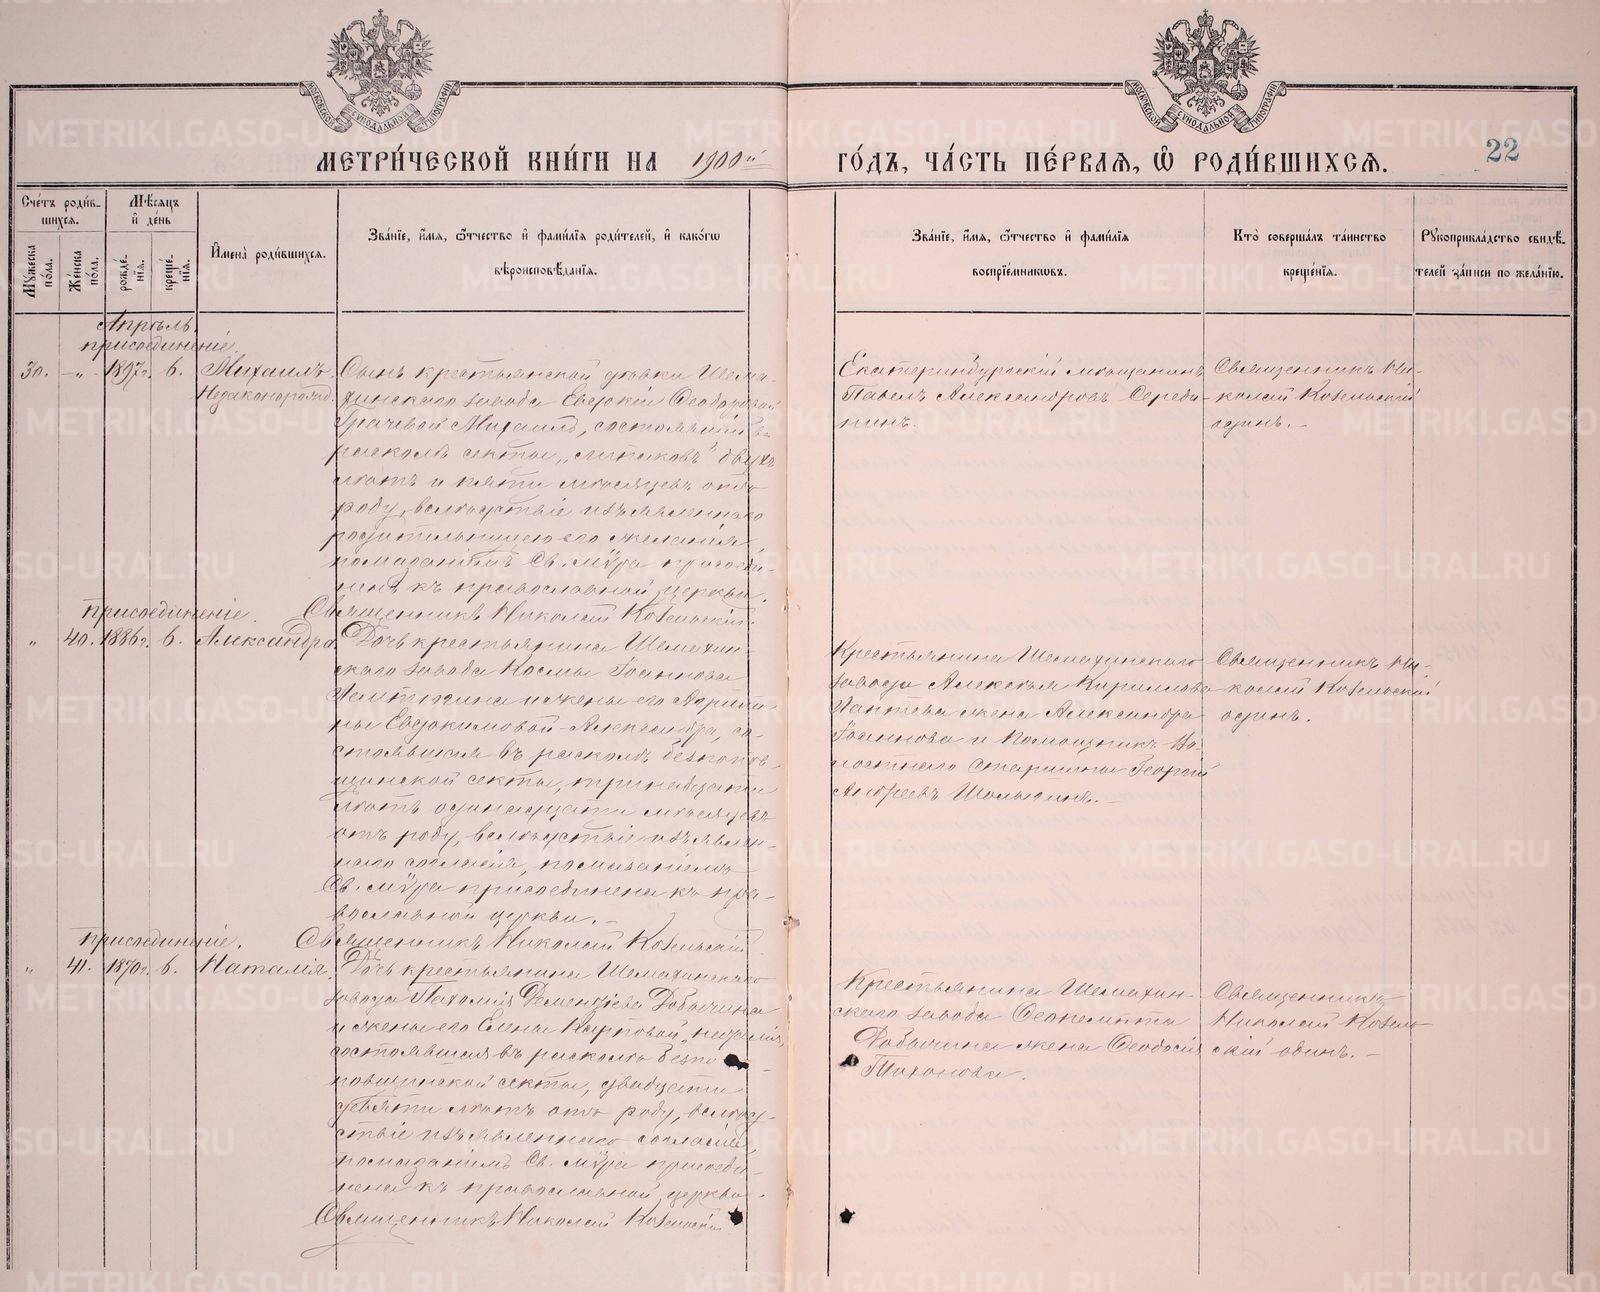 МЕТРИ́ЧЕСКОЙ КНИ́ГИ НА 1900й ГО́ДЪ, ЧА́СТЬ ПЕ́РВАЯ, Ѡ҆ РОДИ́ВШИХСЯ.
22
Сче́тъ роди́вшихся.
Мѣ́сяцъ и҆ де́нь
Мꙋ́жеска по́ла.
Же́нска по́ла.
рожде́нїя.
креще́нїя.
И҆мена̀ роди́вшихся.
Зва́нїе, и҆́мя, ѻ҆́тчество и҆ фами́лїя роди́телей, и҆ како́гѡ
вѣроисповѣ́данїя.
Зва́нїе, и҆́мя, ѻ҆́тчество и҆ фами́лїя
воспрїе́мникѡвъ.
Кто̀ соверша́лъ та́инство
креще́нїя.
Рꙋкоприкла́дство свидѣ́-
телей за́писи по жела́нїю.
Апрѣль.
присоединеніе.
30. -„- 1897г. 6. Михаилъ
Незаконорожд.
Сынъ крестьянской дѣвки Шема-
хинскаго завода Евдокіи Ѳеодоровой
Грачевой Михаилъ, состоявшій въ
расколѣ секты „ двухъ
лѣтъ и пяти мѣсяцевъ отъ
роду, вслѣдствіе изъявленнаго
родительницею его желанія
помазаніемъ Св. мѵра присоеди-
ненъ къ православной церкви.
Священникъ Николай Козельскій.
Екатеринбургскій мѣщанинъ
Павелъ Александровъ Середи-
нинъ.
Священникъ Ни-
колай Козельскій
одинъ. –
присоединеніе.
„ 40. 1886г. 6. Александра.
Дочь крестьянина Шемахин-
скаго завода Космы Іоаннова
и жены его
Евдокимовой – Александра, со-
стоявшая въ расколѣ безпопов-
щинской секты, тринадцати
лѣтъ одинадцати мѣсяцевъ
отъ роду, вслѣдствіе изъявлен-
наго согласія, помазаніемъ
Св. мѵра присоединена къ пра-
вославной церкви. –
Священникъ Николай Козельскій.
Крестьянина Шемахинскаго
завода Алексѣя Кириллова
Лаптева жена Александра
Іоаннова и Помощникъ Во-
лостнаго Старшины Георгій
Андреевъ
Священникъ Ни-
колай Козельскій
одинъ.
присоединеніе.
„ 41. 1870г. 6. Наталія.
Дочь крестьянина Шемахинскаго
завода Пахомія Дементіева Добычина
и жены его Елены Карповой, Наталія,
состоявшая въ расколѣ безпо-
повщинской секты, двадцати
девяти лѣтъ отъ роду, вслѣд-
ствіе изъявленнаго согласія,
помазаніемъ Св. мѵра присоеди-
нена къ православной церкви.
Священникъ Николай Козельскій
Крестьянина Шемахин-
скаго завода Ѳеоктиста
Добычина жена Ѳеодосія
Тихонова.
Священникъ
Николай Козель-
скій одинъ. –
METRIKI.GASO-URAL.RU